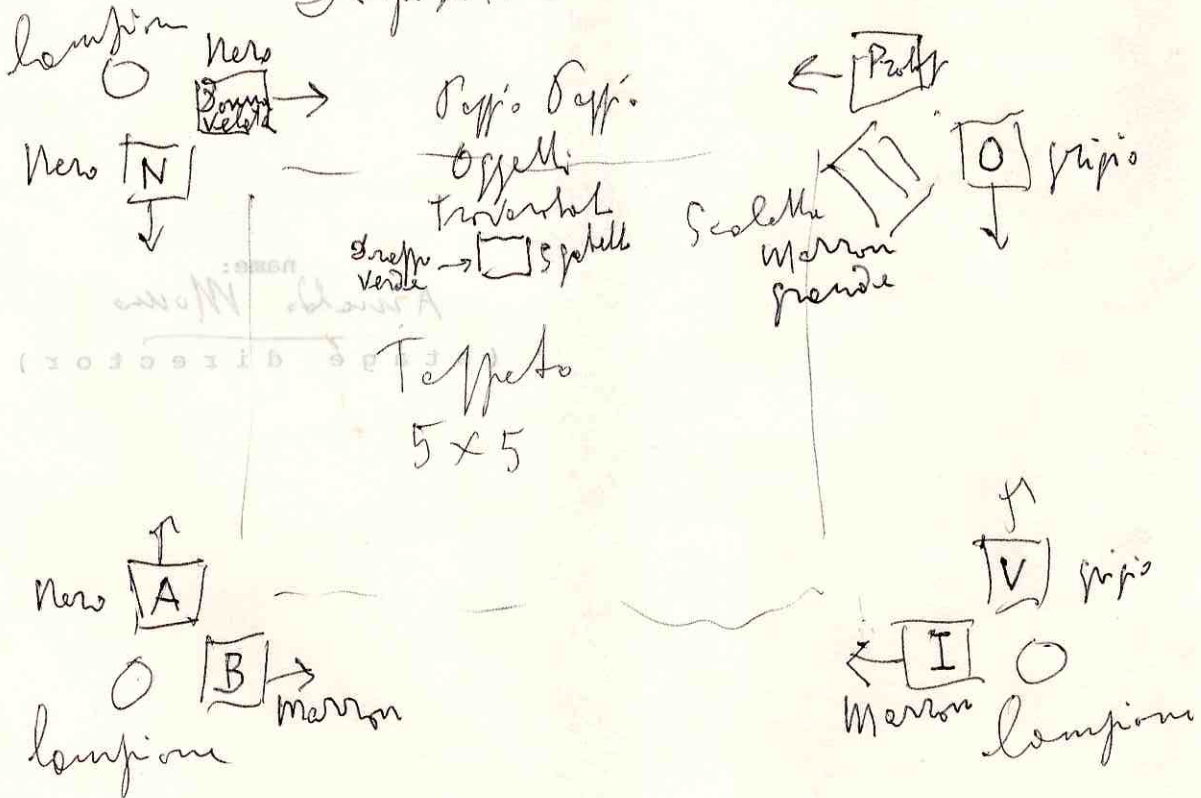 lampione
Nero
Donna
velata
Nero N
Oggetti
Trovarobat
Drappo
verde
Sgabello
O grigio
Scaletta
marron
grande
name:
(stage director)
Tappeto
5 x 5
Nero A
B
marron
lampione
V grigio
I
Marron
lampione